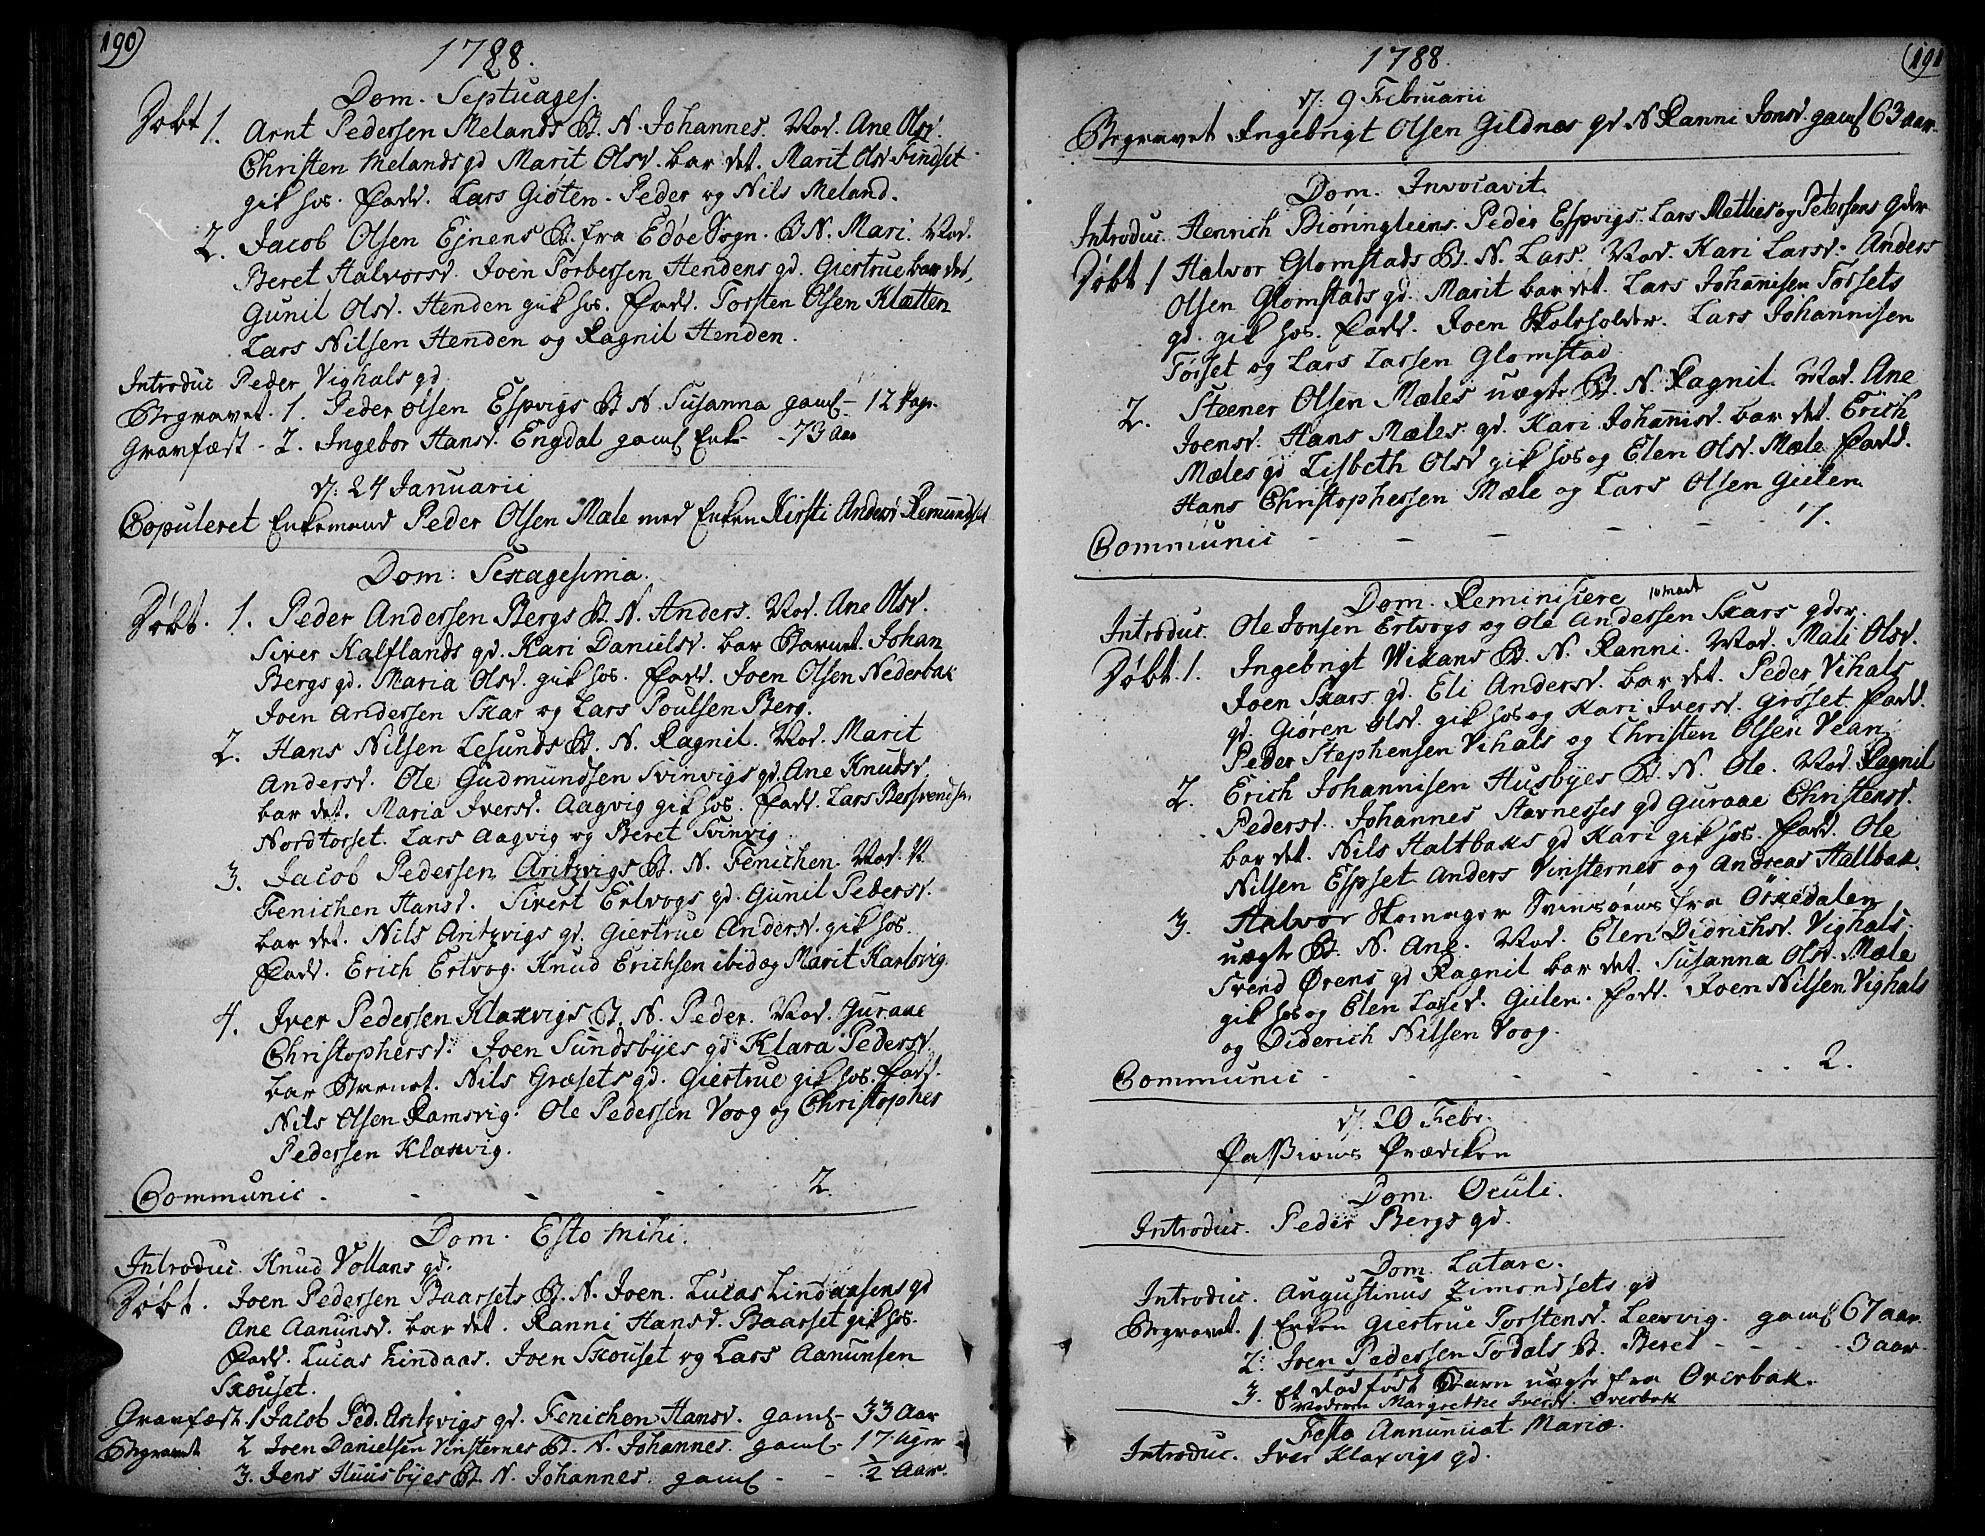 190)
1788.
Dom. Septuages.
Døbt 1. Arnt Pedersen Melands B. N. Johannes. Mod. Ane Olsd.
Christen Melands gd Marit Olsd. bar det. Marit Olsd Findset
gik hos. Fadd. Lars Giøten. Peder og Nils Meland.
2. Jacob Olsen Ejnens B. fra Edøe Sogn. B N. Mari. Mod.
Beret Halvorsd. Joen Torbersen Hendens gd. Giertrue bar det,
Gunil Olsd. Henden gik hos. Fadd. Torsten Olsen Klætten
Lars Nilsen Henden og Ragnil Henden.
Introduc Peder Vighals gd
Begravet. 1. Peder Olsen Espvigs B N. Susanna gaml - 12 Dage.
Gravfæst - 2. Ingebor Hansd. Engdal gaml Enke - 73 Aar
d: 24 Januarii
Copuleret Enkemand Peder Olsen Mæle med Enken Kirsti Andersd Remundset
Dom: Sexagesima.
Døbt. 1. Peder Andersen Bergs B. N. Anders. Mod. Ane Olsd.
Siver Kalflands gd. Kari Danielsd. bar Barnet. Johan
Bergs gd. Maria Olsd. gik hos. Fadd. Joen Olsen Nederbak
Joen Andersen Skar og Lars Poulsen Berg.
2. Hans Nilsen Lesunds B. N. Ragnil. Mod. Marit
Andersd. Ole Gudmundsen Svinvigs gd. Ane Knudsd
bar det. Maria Iversd. Aagvig gik hos. Fadd. Lars Bersvendsen
Nordtorset. Lars Aagvig og Beret Svinvig.
3. Jacob Pedersen Aritzvigs B. N. Fenichen. Mod. N.
Fenichen Hansd. Sivert Ertvogs gd. Gunil Pedersd.
bar det. Nils Aritzvigs gd. Giertrue Andersd. gik hos.
Fadd. Erich Ertvog. Knud Erichsen ibid og Marit Karlsvig.
4. Iver Pedersen Klaxvigs B. N. Peder. Mod. Guraae
Christophersd. Joen Sundsbyes gd Klara Pedersd.
bar Barnet. Nils Græsets gd. Giertrue gik hos. Fadd.
Nils Olsen Ramsvig. Ole Pedersen Voog og Christopher
Pedersen Klaxvig.
Communic - - - - - 2.
Dom. Esto mihi.
Introduc Knud Vollans gd.
Døbt. Joen Pedersen Baarsets B. N. Joen. Lucas Lindaasens gd
Ane Aanunsd. bar det. Ranni Hansd. Baarset gik hos.
Fadd. Lucas Lindaas. Joen Skouset og Lars Aanunsen
Skouset.
Gravfæst 1 Jacob Ped. Aritzvigs gd. Fenichen Hansd. gaml - 33 Aar
Begravet 2 Joen Danielsen Vinsternes B. N. Johannes. gaml - 17 Uger
3. Jens Huusbyes B N. Johannes. gaml - - ½ Aar.
(191
1788.
d: 9 Februarii
Begravet Ingebrigt Olsen Gildnes gd N Ranni Jonsd. gaml 63 aar.
Dom. Invocavit.
Introduc. Henrich Biøringleens. Peder Espvigs. Lars Metties og Petersens gder
Døbt 1 Halvor Glomstads B. N. Lars. Mod. Kari Larsd. Anders
Olsen Glomstads gd. Marit bar det. Lars Johannisen Torsets
gd. gik hos. Fadd. Joen Skoleholder. Lars Johannisen
Torset og Lars Larsen Glomstad
2. Steener Olsen Mæles uægte B. N. Ragnil. Mod. Ane
Joensd. Hans Mæles gd. Kari Johannisd. bar det. Erich
Mæles gd Lisbeth Olsd gik hos og Elen Olsd. Mæle Fadd.
Hans Christophersen Mæle og Lars Olsen Gielen
Communic - - - - - - 7.
Dom. Reminisiere
Introduc. Ole Jonsen Ertvogs og Ole Andersen Skars gder.
Døbt. 1. Ingebrigt Wikans B. N. Ranni. Mod. Mali Olsd.
Joen Skars gd. Eli Andersd. bar det. Peder Vihals
gd. Giøren Olsd. gik hos og Kari Iversd. Grøset. Fadd.
Peder Stephensen Vihals og Christen Olsen Vean.
2. Erich Johannisen Husbyes B. N. Ole. Mod. Ragnil
Pedersd. Johannes Stavnesses gd Guraae Christensd.
bar det. Nils Haltbaks gd Kari gik hos. Fadd. Ole
Nilsen Espset. Anders Vinsternes og Andreas Hallbak.
3. Halvor Skomager Svinsøens fra Orkedalen
uægte B. N. Ane. Mod. Elen Didrichsd. Vighals.
Svend Ørens gd Ragnil bar det. Susanna Olsd. Mæle
gik hos og Elen Larsd. Gielen. Fadd. Joen Nilsen Vighals
og Diderich Nilsen Voog.
Communic - - - - - - 2.
d: 20 Febr.
Passions Prædiken
Dom. Oculi.
Introduc. Peder Bergs gd.
Dom. Lætare.
Introduc. Augustinus Zimondsets gd
Begravet. 1. Enken Giertrue Torstensd. Leervig. gaml 67 aar.
2. Joen Pedersen Todals B. Beret - - - - 3 aar.
3. Et dødfødt Barn uægte fra Overbak.
Moderen Margrethe Iversd. Overbak
Festo Annuntiat Mariæ.
Introduc. Iver Klaxvigs gd.